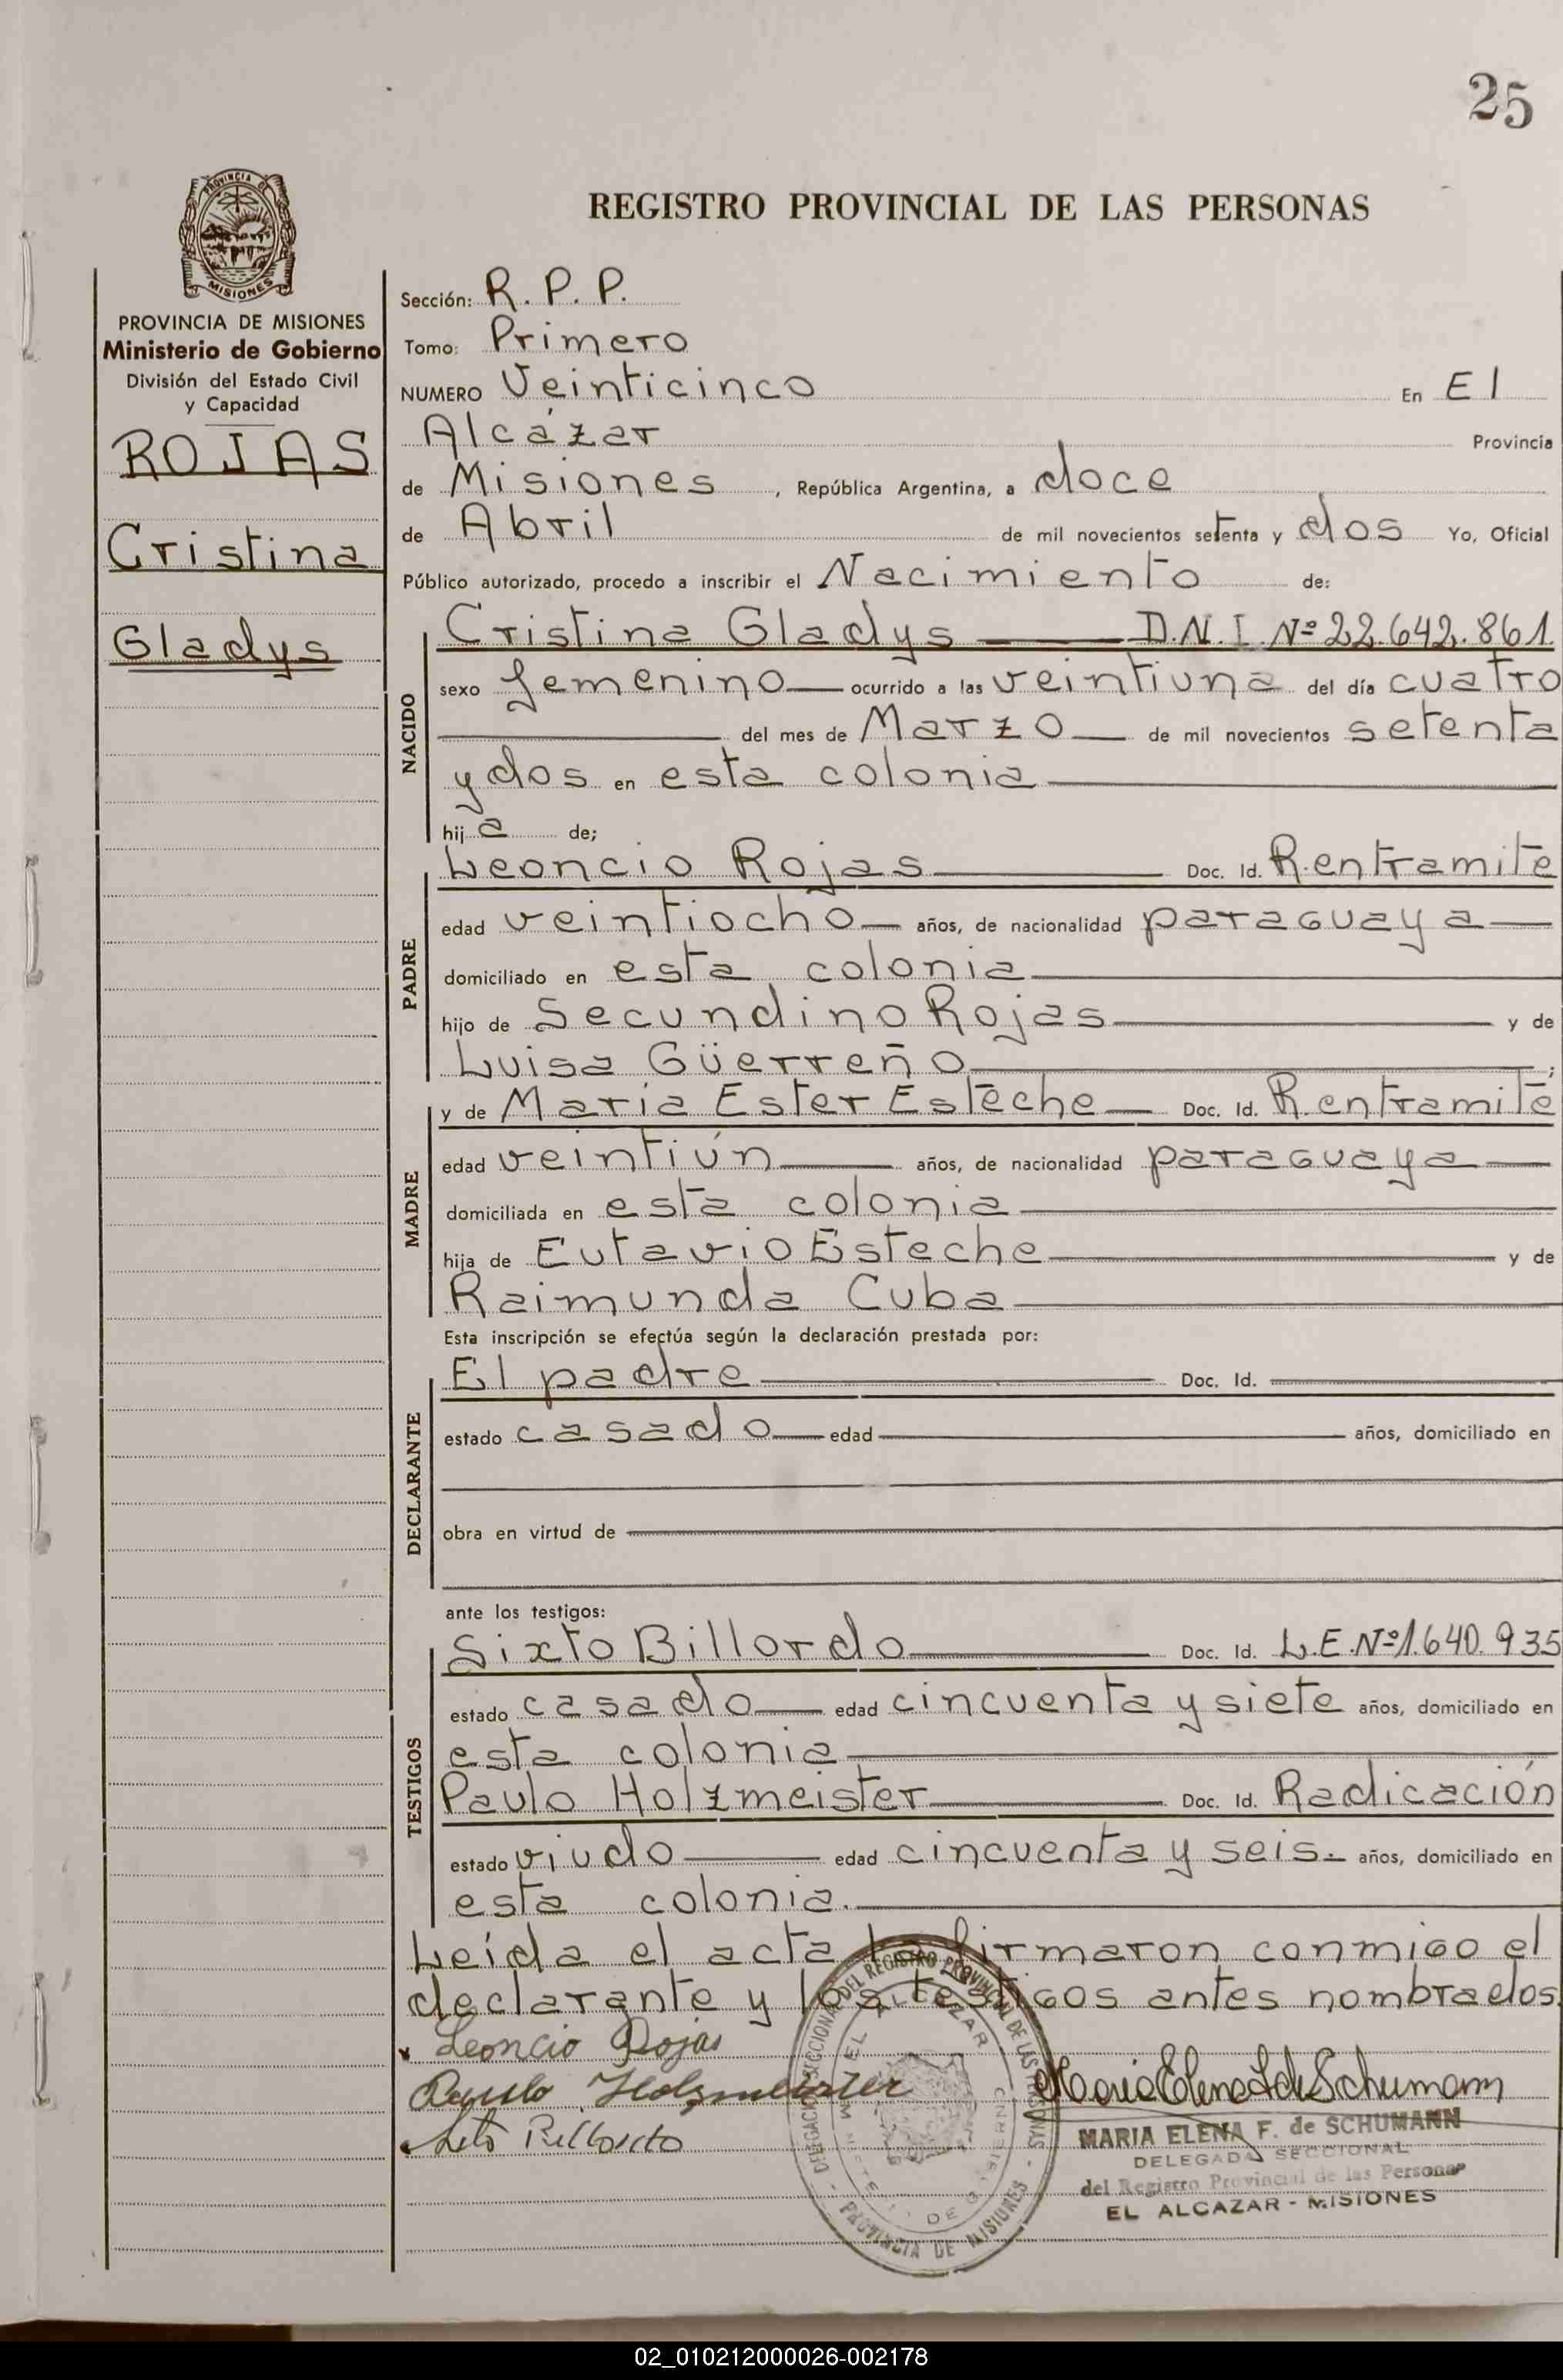 25
PROVINCIA DE
MISIONES
REGISTRO PROVINCIAL DE LAS PERSONAS
PROVINCIA DE MISIONES
Ministerio de Gobierno
División del Estado Civil
y Capacidad
ROJAS
Cristina
Gladys
Sección: R. P. P.
Tomo: Primero
NUMERO Veinticinco En El
Alcázar Provincia
de Misiones, República Argentina, a doce
de Abril de mil novecientos setenta y dos Yo, Oficial
Público autorizado, procedo a inscribir el Nacimiento de:
NACIDO
Cristina Gladys D.N.I. Nº 22.642.861
sexo femenino ocurrido a las veintiuna del día cuatro
del mes de Marzo de mil novecientos setenta
y dos en esta colonia
hija de;
PADRE
Leoncio Rojas Doc. Id. R.entramite
edad veintiocho años, de nacionalidad paraguaya
domiciliado en esta colonia
hijo de Secundino Rojas y de
Luisa Güerreño;
MADRE
y de María Ester Esteche Doc. Id. R.entramite
edad veintiún años, de nacionalidad paraguaya
domiciliada en esta colonia
hija de Eutavio Esteche y de
Raimunda Cuba
Esta inscripción se efectúa según la declaración prestada por:
DECLARANTE
El padre Doc. Id.
estado casado edad años, domiciliado en
obra en virtud de
ante los testigos:
TESTIGOS
Sixto Billordo Doc. Id. L.E.Nº1.640.935
estado casado edad cincuenta y siete años, domiciliado en
esta colonia
Paulo Holzmeister Doc. Id. Radicación
estado viudo edad cincuenta y seis. años, domiciliado en
esta colonia.
Leída el acta la firmaron conmigo el
declarante y los testigos antes nombrados.
Leoncio Rojas
Paulo Holzmeister
Maria Elena F de Schumann
DELEGACION SECCIONAL DEL REGISTRO PROVINCIAL DE LAS PERSONAS
EL ALCAZAR
PROVINCIA DE MISIONES
MARIA ELENA F. de SCHUMANN
DELEGADA SECCIONAL
del Registro Provincial de las Personas
EL ALCAZAR - MISIONES
02_010212000026-002178